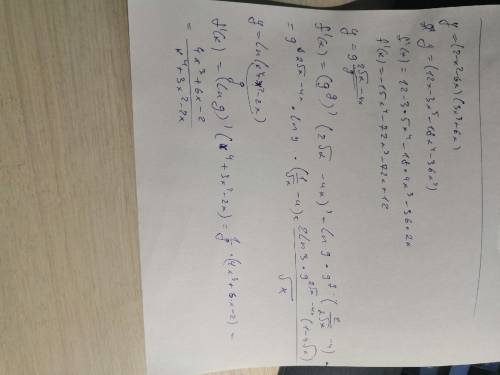 y = (2-x²-6x)(3x³+6x)
y = (12x-3x⁵-18x⁴-36x²)
f'(x) = 12-3·5x⁴-18·4x³-36·2x
f'(x) = -15x⁴-72x³-72x+12
y = 9^(2√x-4x)
f'(x) = (9^g)' (2√x - 4x)' = ln 9 · 9^g · (2/(2√x) - 4) =
= 9^(2√x-4x) · ln 9 · (1/√x - 4) = 2ln3 · 9^(2√x-4x) (1-4√x) / √x
y = ln(x⁴ x²-2x)
f'(x) = (ln g)' (x⁴+3x²-2x)' = 1/g · (4x³+6x-2) =
= (4x³+6x-2) / (x⁴+3x²-2x)